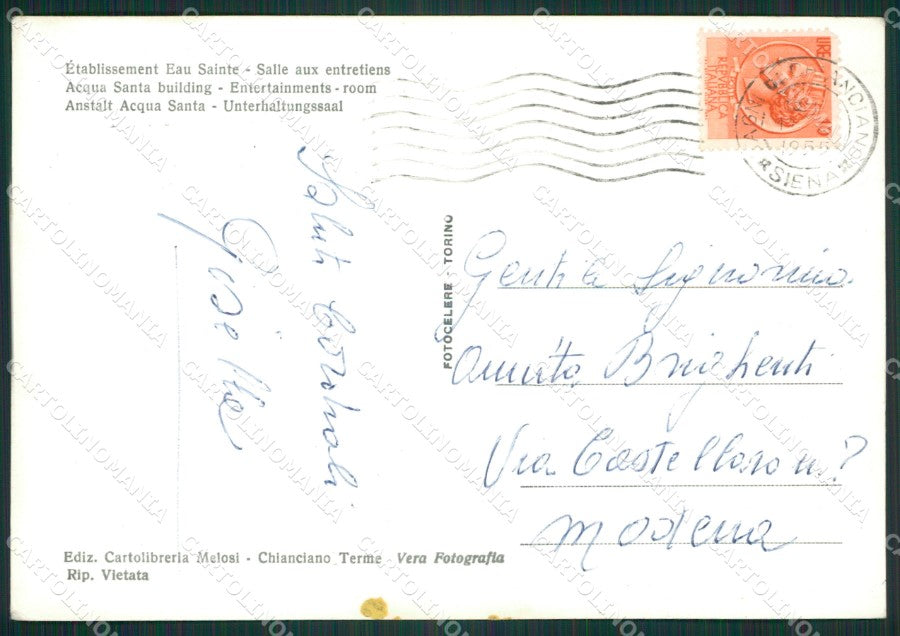 Établissement Eau Sainte - Salle aux entretiens
Acqua Santa building - Entertainments - room
Anstalt Acqua Santa - Unterhaltungssaal
LIRE
REPVBBLICA
ITALIANA
SIENA
Saluti Cordiali
FOTOCELERE - TORINO
Gentile Signorina
Brighenti
Via
Modena
Ediz. Cartolibreria Melosi - Chianciano Terme - Vera Fotografia
Rip. Vietata
CARTOLINOMANIA